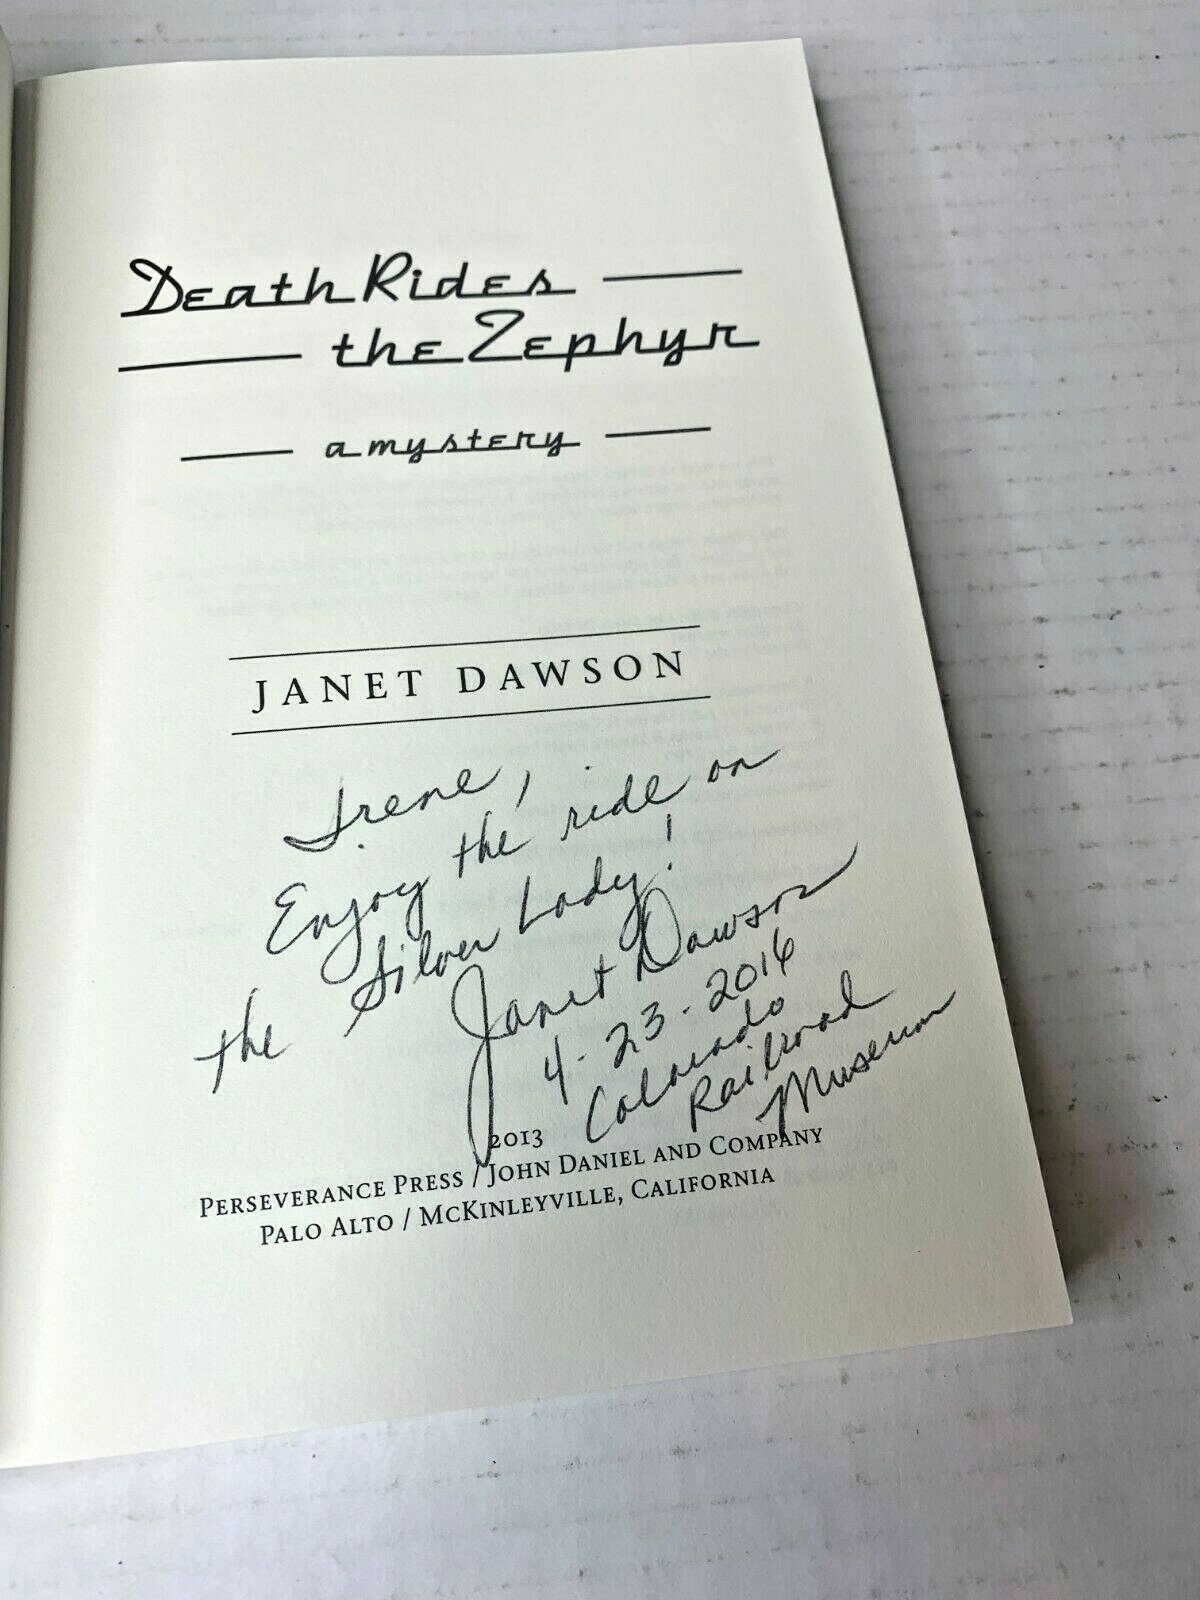 Death Rides
the Zephyr
a mystery
JANET DAWSON
Irene,
Enjoy the ride on
the Silver Lady!
Janet Dawson
4-23-2016
Colorado
Railroad
Museum
2013
PERSEVERANCE PRESS / JOHN DANIEL AND COMPANY
PALO ALTO / MCKINLEYVILLE, CALIFORNIA